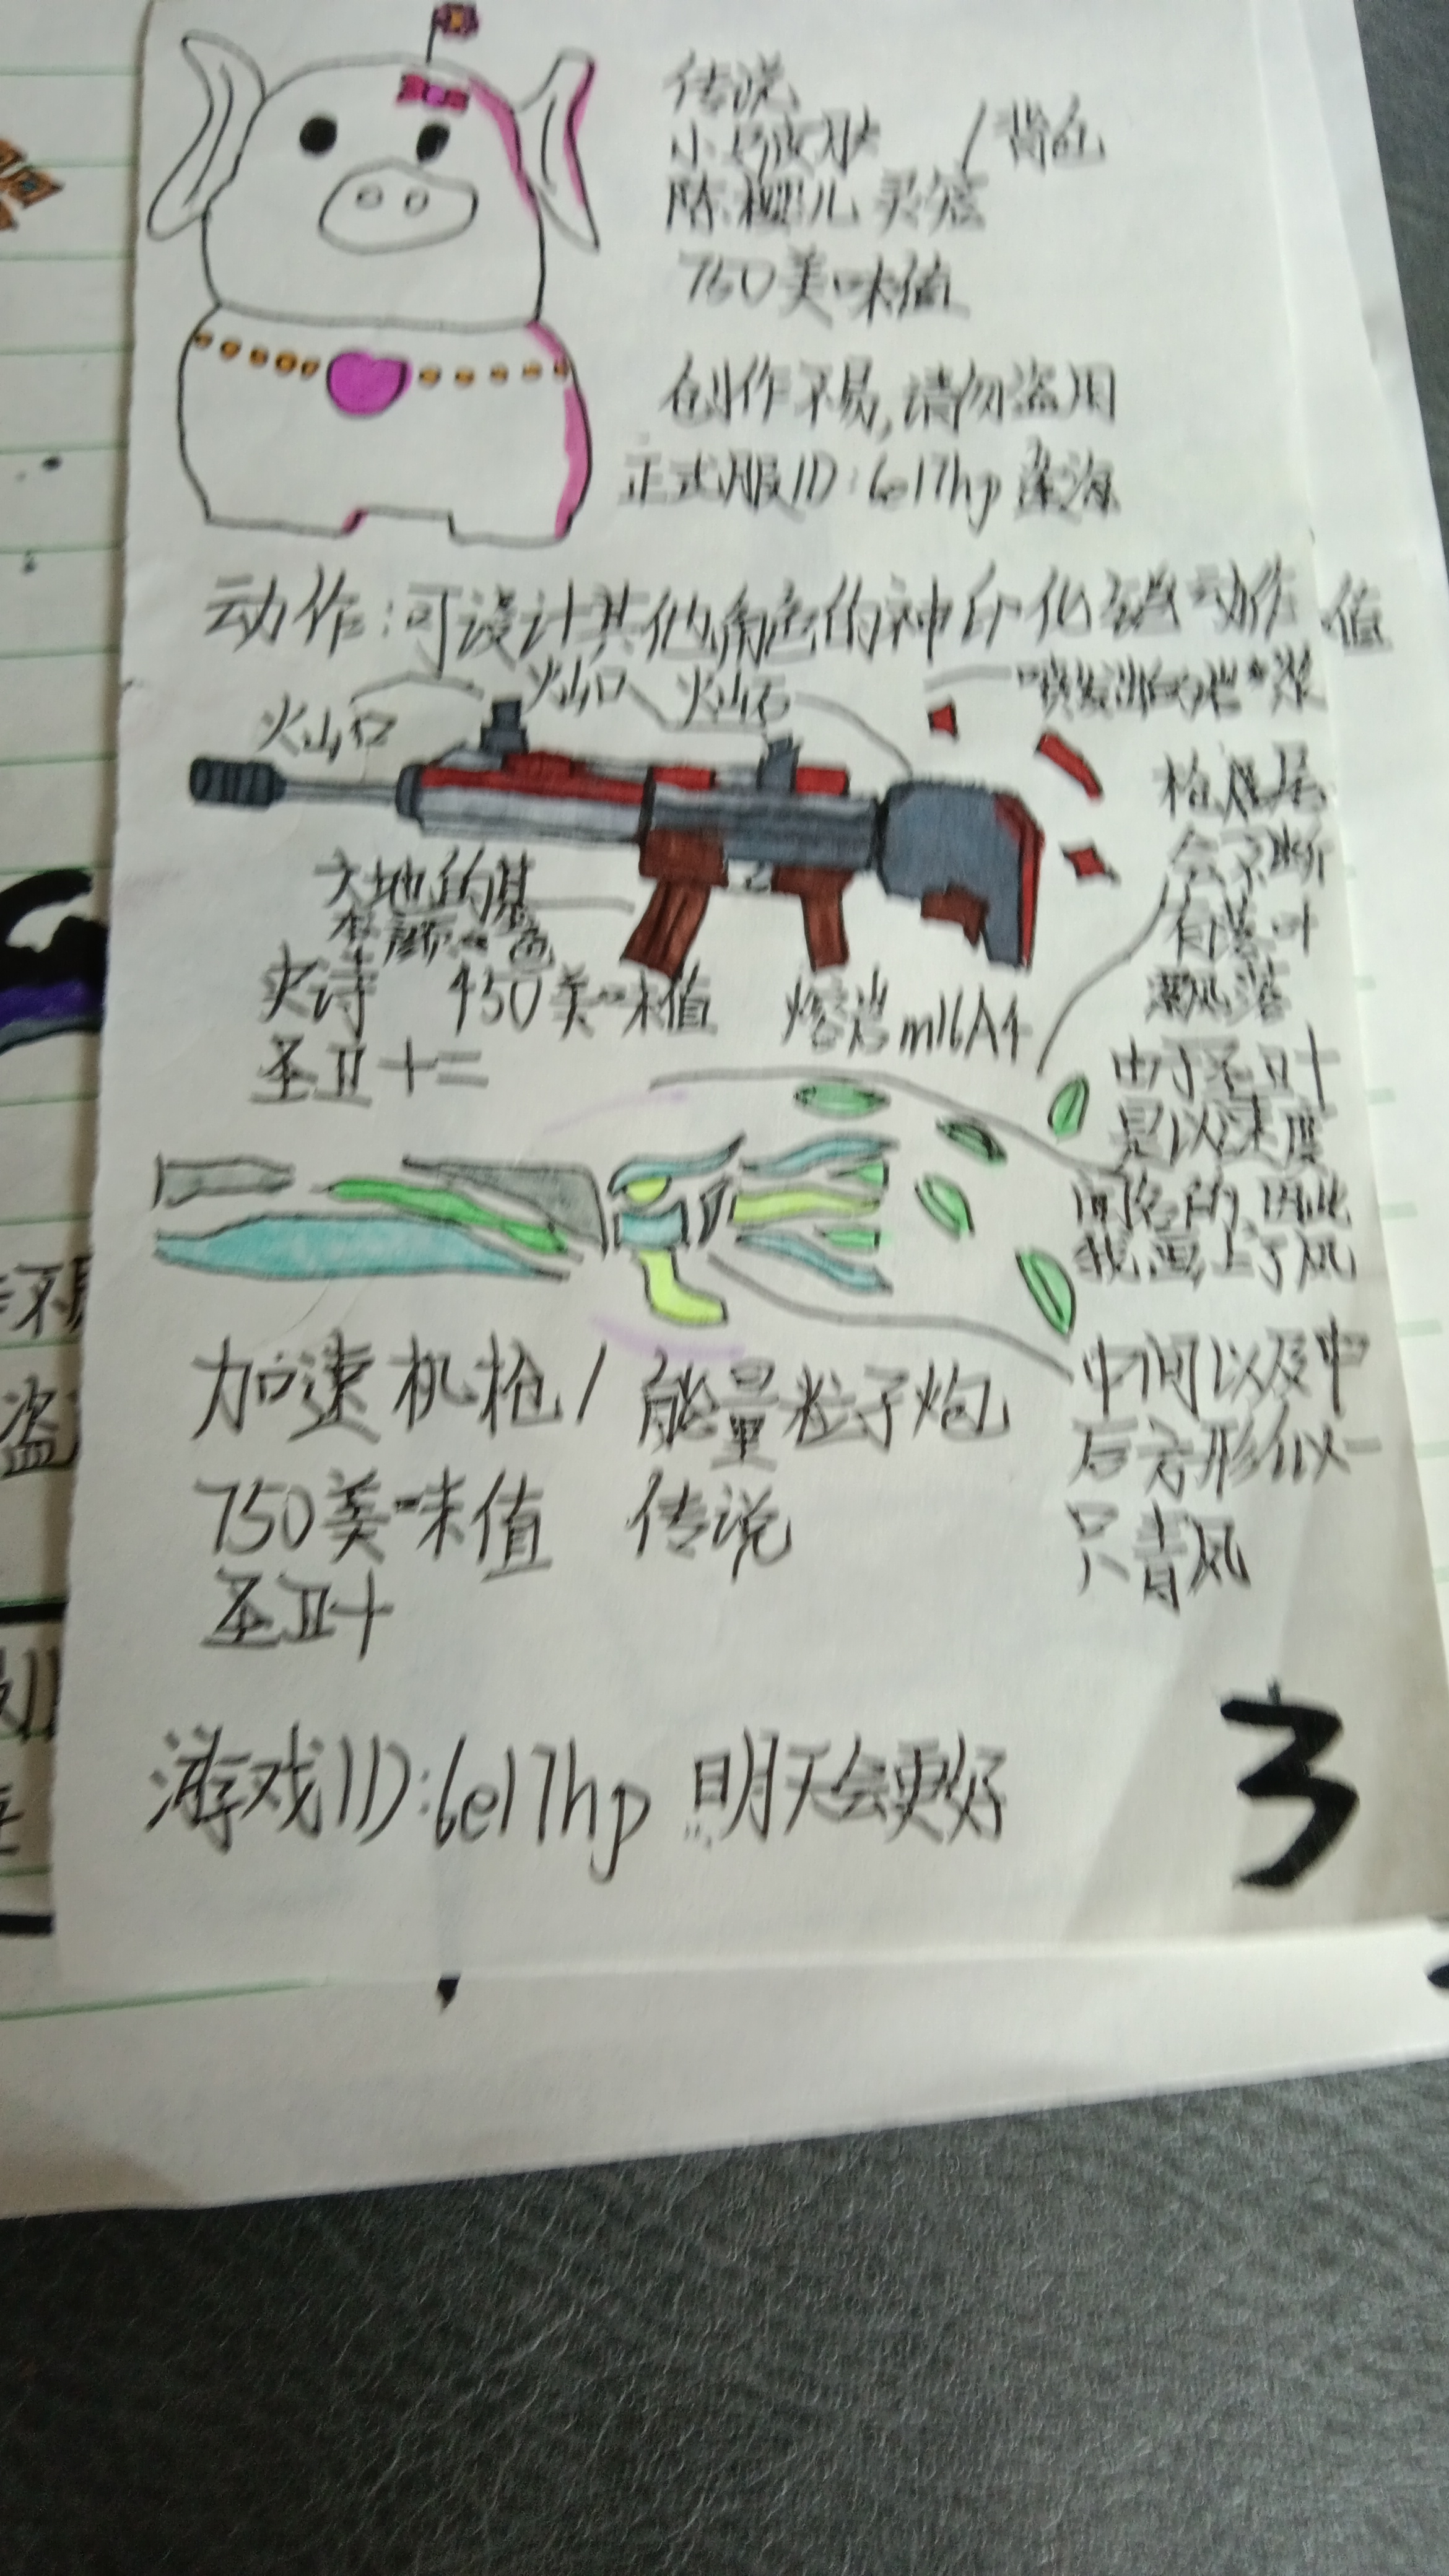 传说
小 皮肤 /背包
陈樱儿灵宠
750美味值
创作不易,请勿盗用
正式服ID:6e17hp 深海
动作:可设计其他角色的神印化 动作 值
火山口
火山口
火山石
喷发出的岩浆
大地的基
本颜色
枪尾
会不断
有落叶
飘落
史诗 450美味值 熔岩m16A4
圣卫十二
由于圣卫十
是以速度
闻名的,因此
我画上了风
加速机枪/能量粒子炮
中间以及中
后方形似一
只青凤
750美味值 传说
圣卫十
游戏ID:6e17hp 明天会更好
3
不易
盗